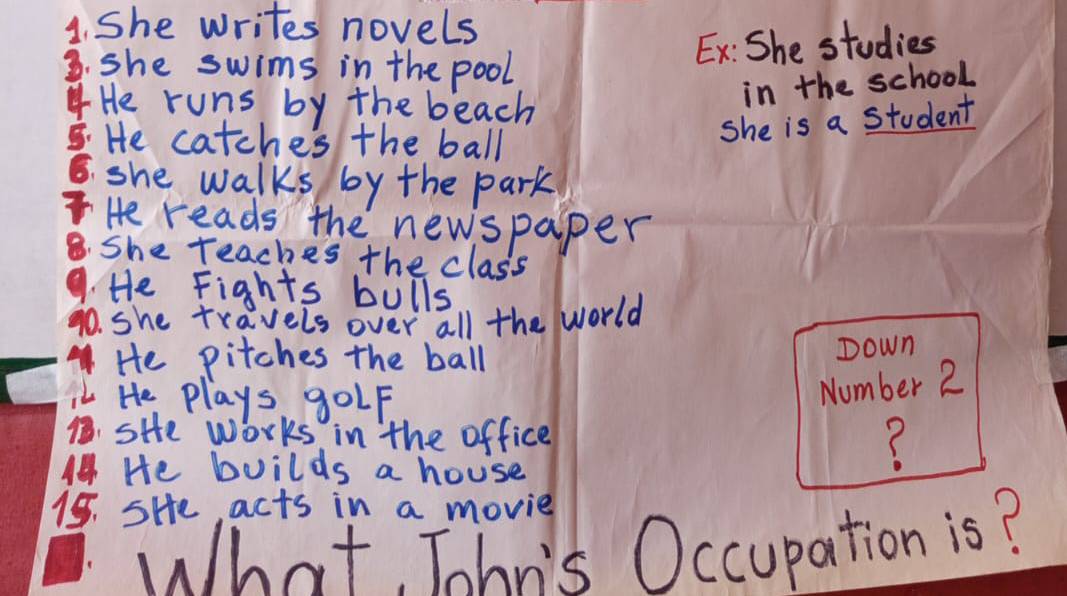 1. She writes novels
3. she swims in the pool
4 He runs by the beach
5. He catches the ball
6. she walks by the park
7 He reads the newspaper
8. She teaches the class
9. He Fights bulls
10. she travels over all the world
11 He pitches the ball
12 He plays golf
13. sHe works in the office
14 He builds a house
15. sHe acts in a movie
What John's Occupation is?
Ex: She studies
in the school
she is a student
Down
Number 2
?